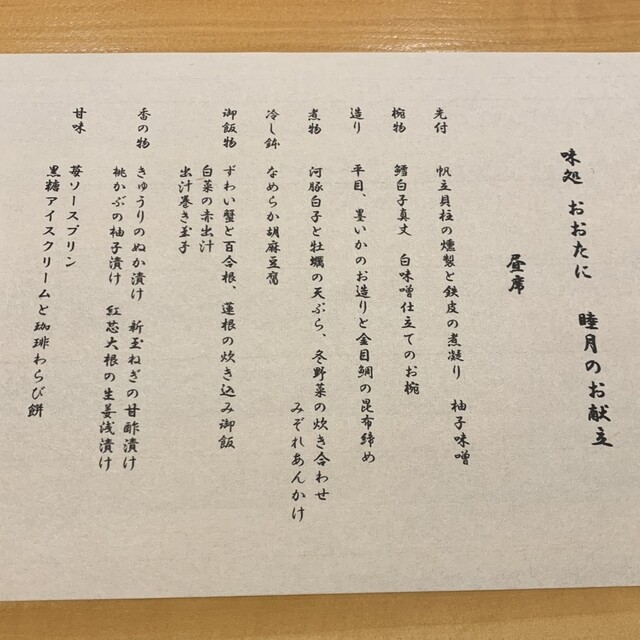 味処 おおたに 睦月のお献立
昼席
先付 帆立貝柱の燻製と鉄皮の煮凝り 柚子味噌
椀物 鱈白子真丈 白味噌仕立てのお椀
造り 平目、墨いかのお造りと金目鯛の昆布締め
煮物 河豚白子と牡蠣の天ぷら、冬野菜の炊き合わせ
みぞれあんかけ
冷し鉢 なめらか胡麻豆腐
御飯物 ずわい蟹と百合根、蓮根の炊き込み御飯
白菜の赤出汁
出汁巻き玉子
香の物 きゅうりのぬか漬け 新玉ねぎの甘酢漬け
桃かぶの柚子漬け 紅芯大根の生姜浅漬け
甘味 苺ソースプリン
黒糖アイスクリームと珈琲わらび餅